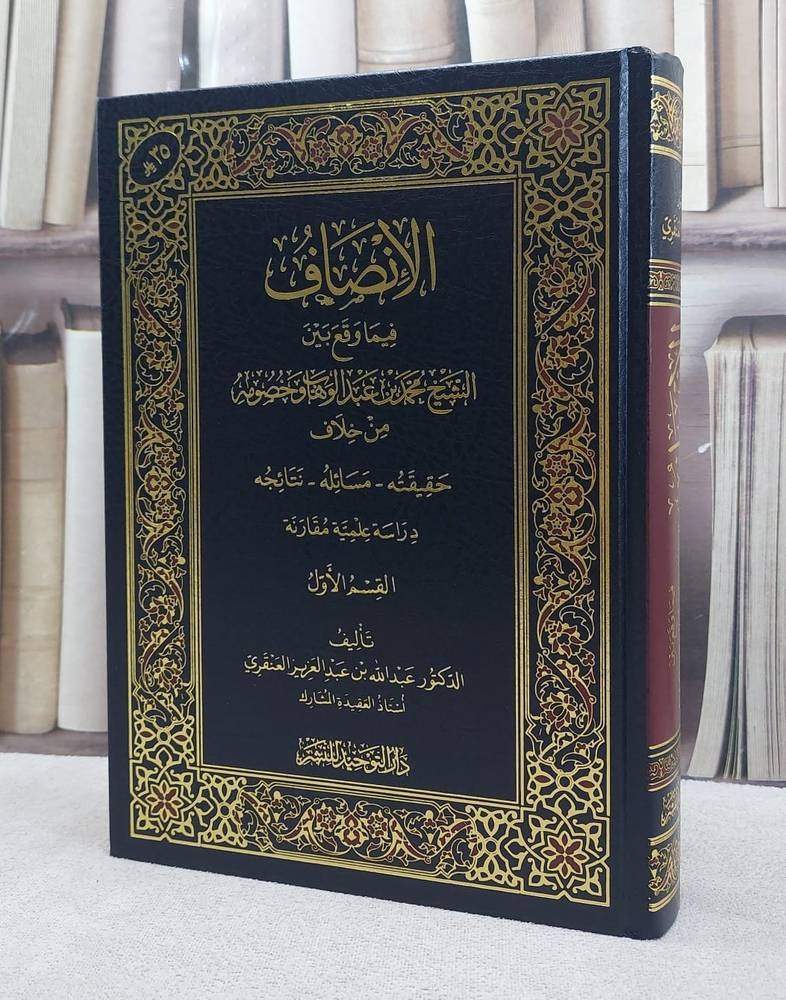 ٢٥ ﷼
الإِنْصَافُ
فِيمَا وَقَعَ بَيْنَ
الشَّيْخِ مُحَمَّد بْنِ عَبْدِ الوَهَّابِ وَخُصُومِهِ
مِنْ خِلَاف
حَقِيقَتُه - مَسَائِلُه - نَتَائِجُه
دِرَاسَة عِلْمِيَّة مُقَارَنَة
القِسْمُ الأَوَّلُ
تَأْلِيفُ
الدَّكتُور عَبْدالله بن عَبْدالعَزِيز العَنْقَرِيّ
أُسْتَاذُ العَقِيدَةِ المُشَارِك
دَارُ التَّوْحِيدِ لِلنَّشْرِ